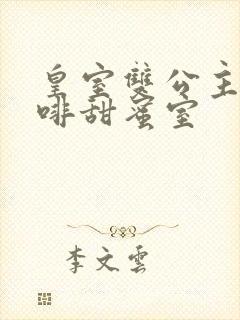 皇室雙公主
啡甜蜜室
李文雲